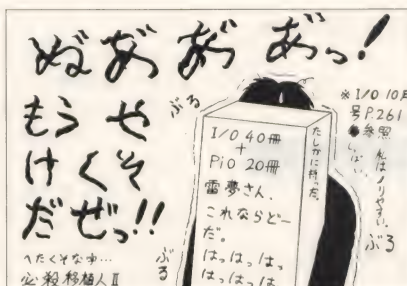 ぬあ゙あ゙あ゙っ!
もうや
けくそ
だぜっ!!
へたくそな字…
必殺移植人Ⅱ
ぶる
ぶる
I/O 40冊
+
PiO 20冊
雷夢さん、
これならどー
だ。
はっはっはっ
はっはっは
たしかに持った。
※I/O 10月
号P.261
参照
しぱい。
私はノリやすい。
ぶる